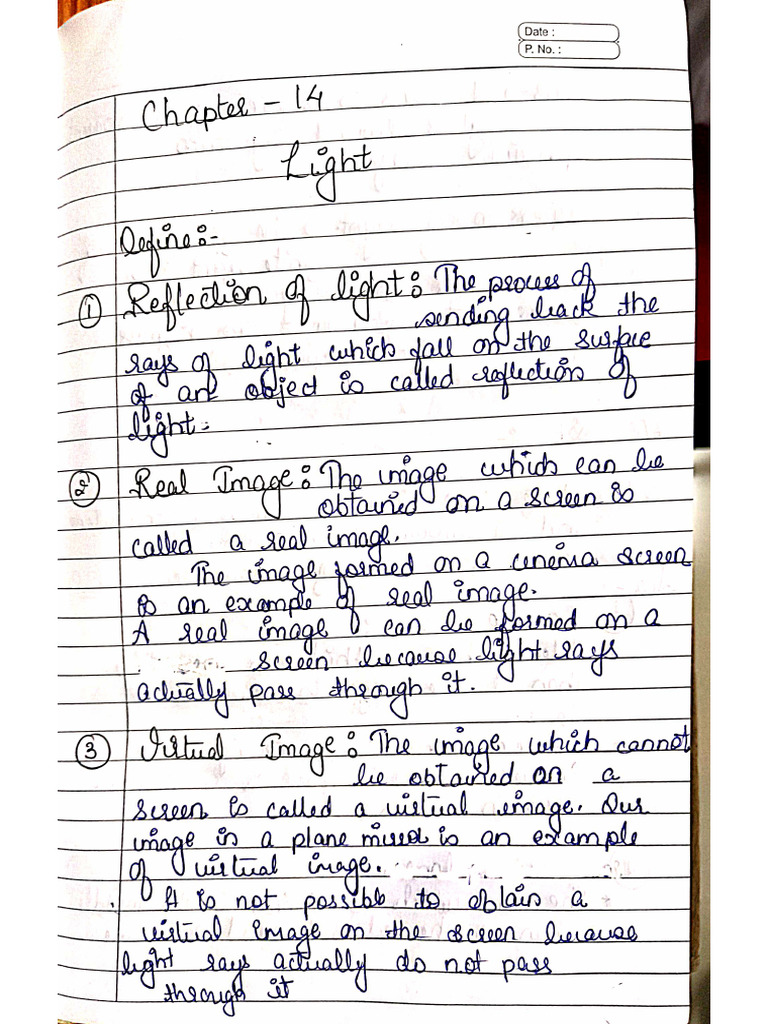 Date :
P. No. :
Chapter - 14
Light
Define:-
① Reflection of light: The process of
sending back the
rays of light which fall on the surface
of an object is called reflection of
light.
② Real Image: The image which can be
obtained on a screen is
called a real image.
The image formed on a cinema screen
is an example of real image.
A real image can be formed on a
screen because light rays
actually pass through it.
③ Virtual Image: The image which cannot
be obtained on a
screen is called a virtual image. Our
image in a plane mirror is an example
of virtual image.
It is not possible to obtain a
virtual image on the screen because
light rays actually do not pass
through it